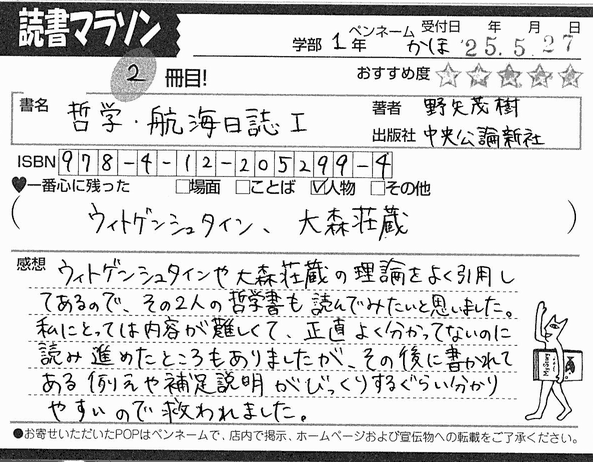 読書マラソン
学部 1年 ペンネーム かほ 受付日 '25年 5月 27日
2 冊目! おすすめ度 ☆☆☆☆☆
書名 哲学・航海日誌 I 著者 野矢茂樹
出版社 中央公論新社
ISBN 978-4-12-205299-4
♥一番心に残った □場面 □ことば ☑人物 □その他
( ウィトゲンシュタイン、大森荘蔵 )
感想 ウィトゲンシュタインや大森荘蔵の理論をよく引用し
てあるので、その2人の哲学書も読んでみたいと思いました。
私にとっては内容が難しくて、正直よく分かってないのに
読み進めたところもありましたが、その後に書かれて
ある例えや補足説明がびっくりするぐらい分かり
やすいので救われました。
●お寄せいただいたPOPはペンネームで、店内で掲示、ホームページおよび宣伝物への転載をご了承ください。